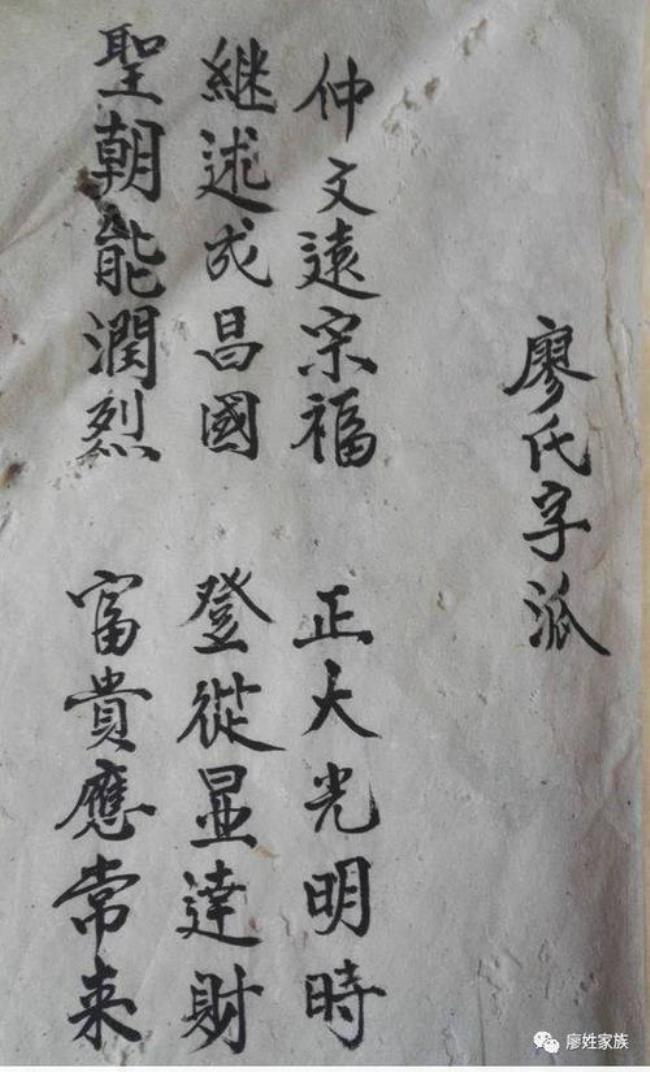 廖氏字派
仲文遠宗福 正大光明時
継述成昌國 登從显達財
聖朝能潤烈 富貴應常来
廖姓家族